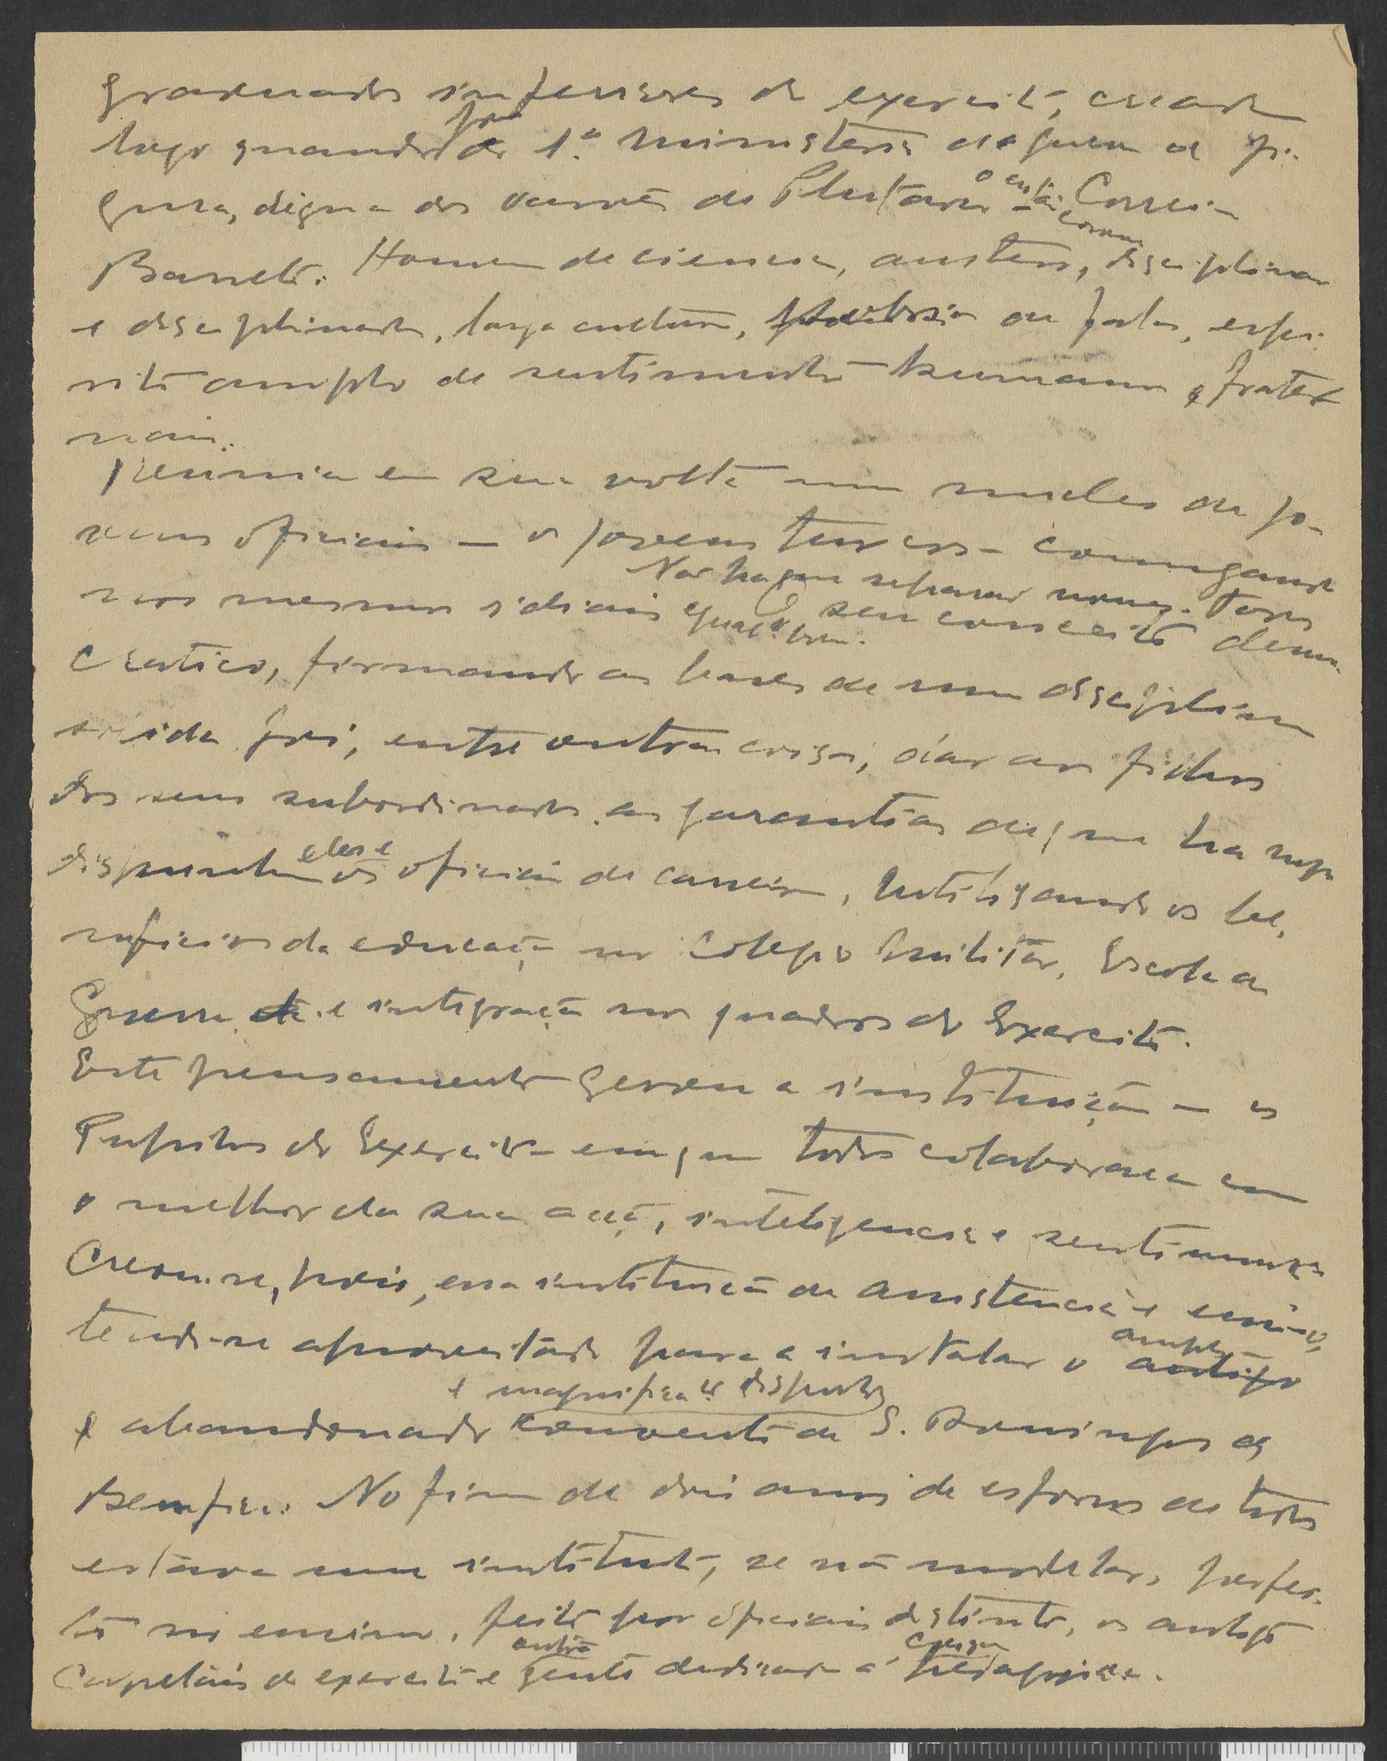 graduados inferiores do exercito, creada
logo quando foi do 1.º ministerio da guerra a fi-
gura, digna dos varões de Plutarco o então Correia
Barreto. Homem de ciencia, austero, disciplinador
e disciplinado, larga cultura, espi-
rito amplo de sentimentos humanos e frater-
nais.
Reunia em sua volta um nucleo de jo-
vens oficiais — os jovens turcos — comungando
Não ha que separar nomes. Todos
nos mesmos ideiais e seu conceito demo-
cratico, firmando as bases de uma disciplina
foi, entre outras coisas, dar aos filhos
dos seus subordinados as garantias de que ha
dispunham eles e os oficiais de carreira, utilizando os be-
neficios da educação no Colegio Militar, Escola de
Guerra e integração nos quadros do Exercito.
Este pensamento gerou a instituição — os
Pupilos do Exercito — em que todos colaboraram com
o melhor da sua acção, inteligencia e sentimento
Creou-se, pois, essa instituição de assistencia e ensino,
tendo-se aproveitado para a instalar o amplo antigo
e magnifica disposto
e abandonado convento de S. Domingos de
Bemfica. No fim de dois anos de esforços de todos
estava um instituto, se não modelar, perfei-
to no ensino, feito por oficiais distintos, os antigos
capelães do exercito e outra gente dedicada á